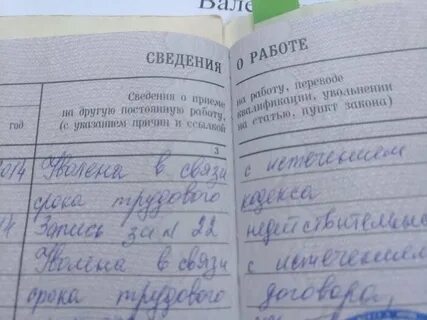 Вале
СВЕДЕНИЯ О РАБОТЕ
Сведения о приеме на работу, переводе
на другую постоянную работу, квалификации, увольнении
(с указанием причин и ссылкой на статью, пункт закона)
год 3
2014 Уволена в связи с истечением
срока трудового кодекса
14 Запись за № 22 недействительна
Уволена в связи с истечением
срока трудового договора,